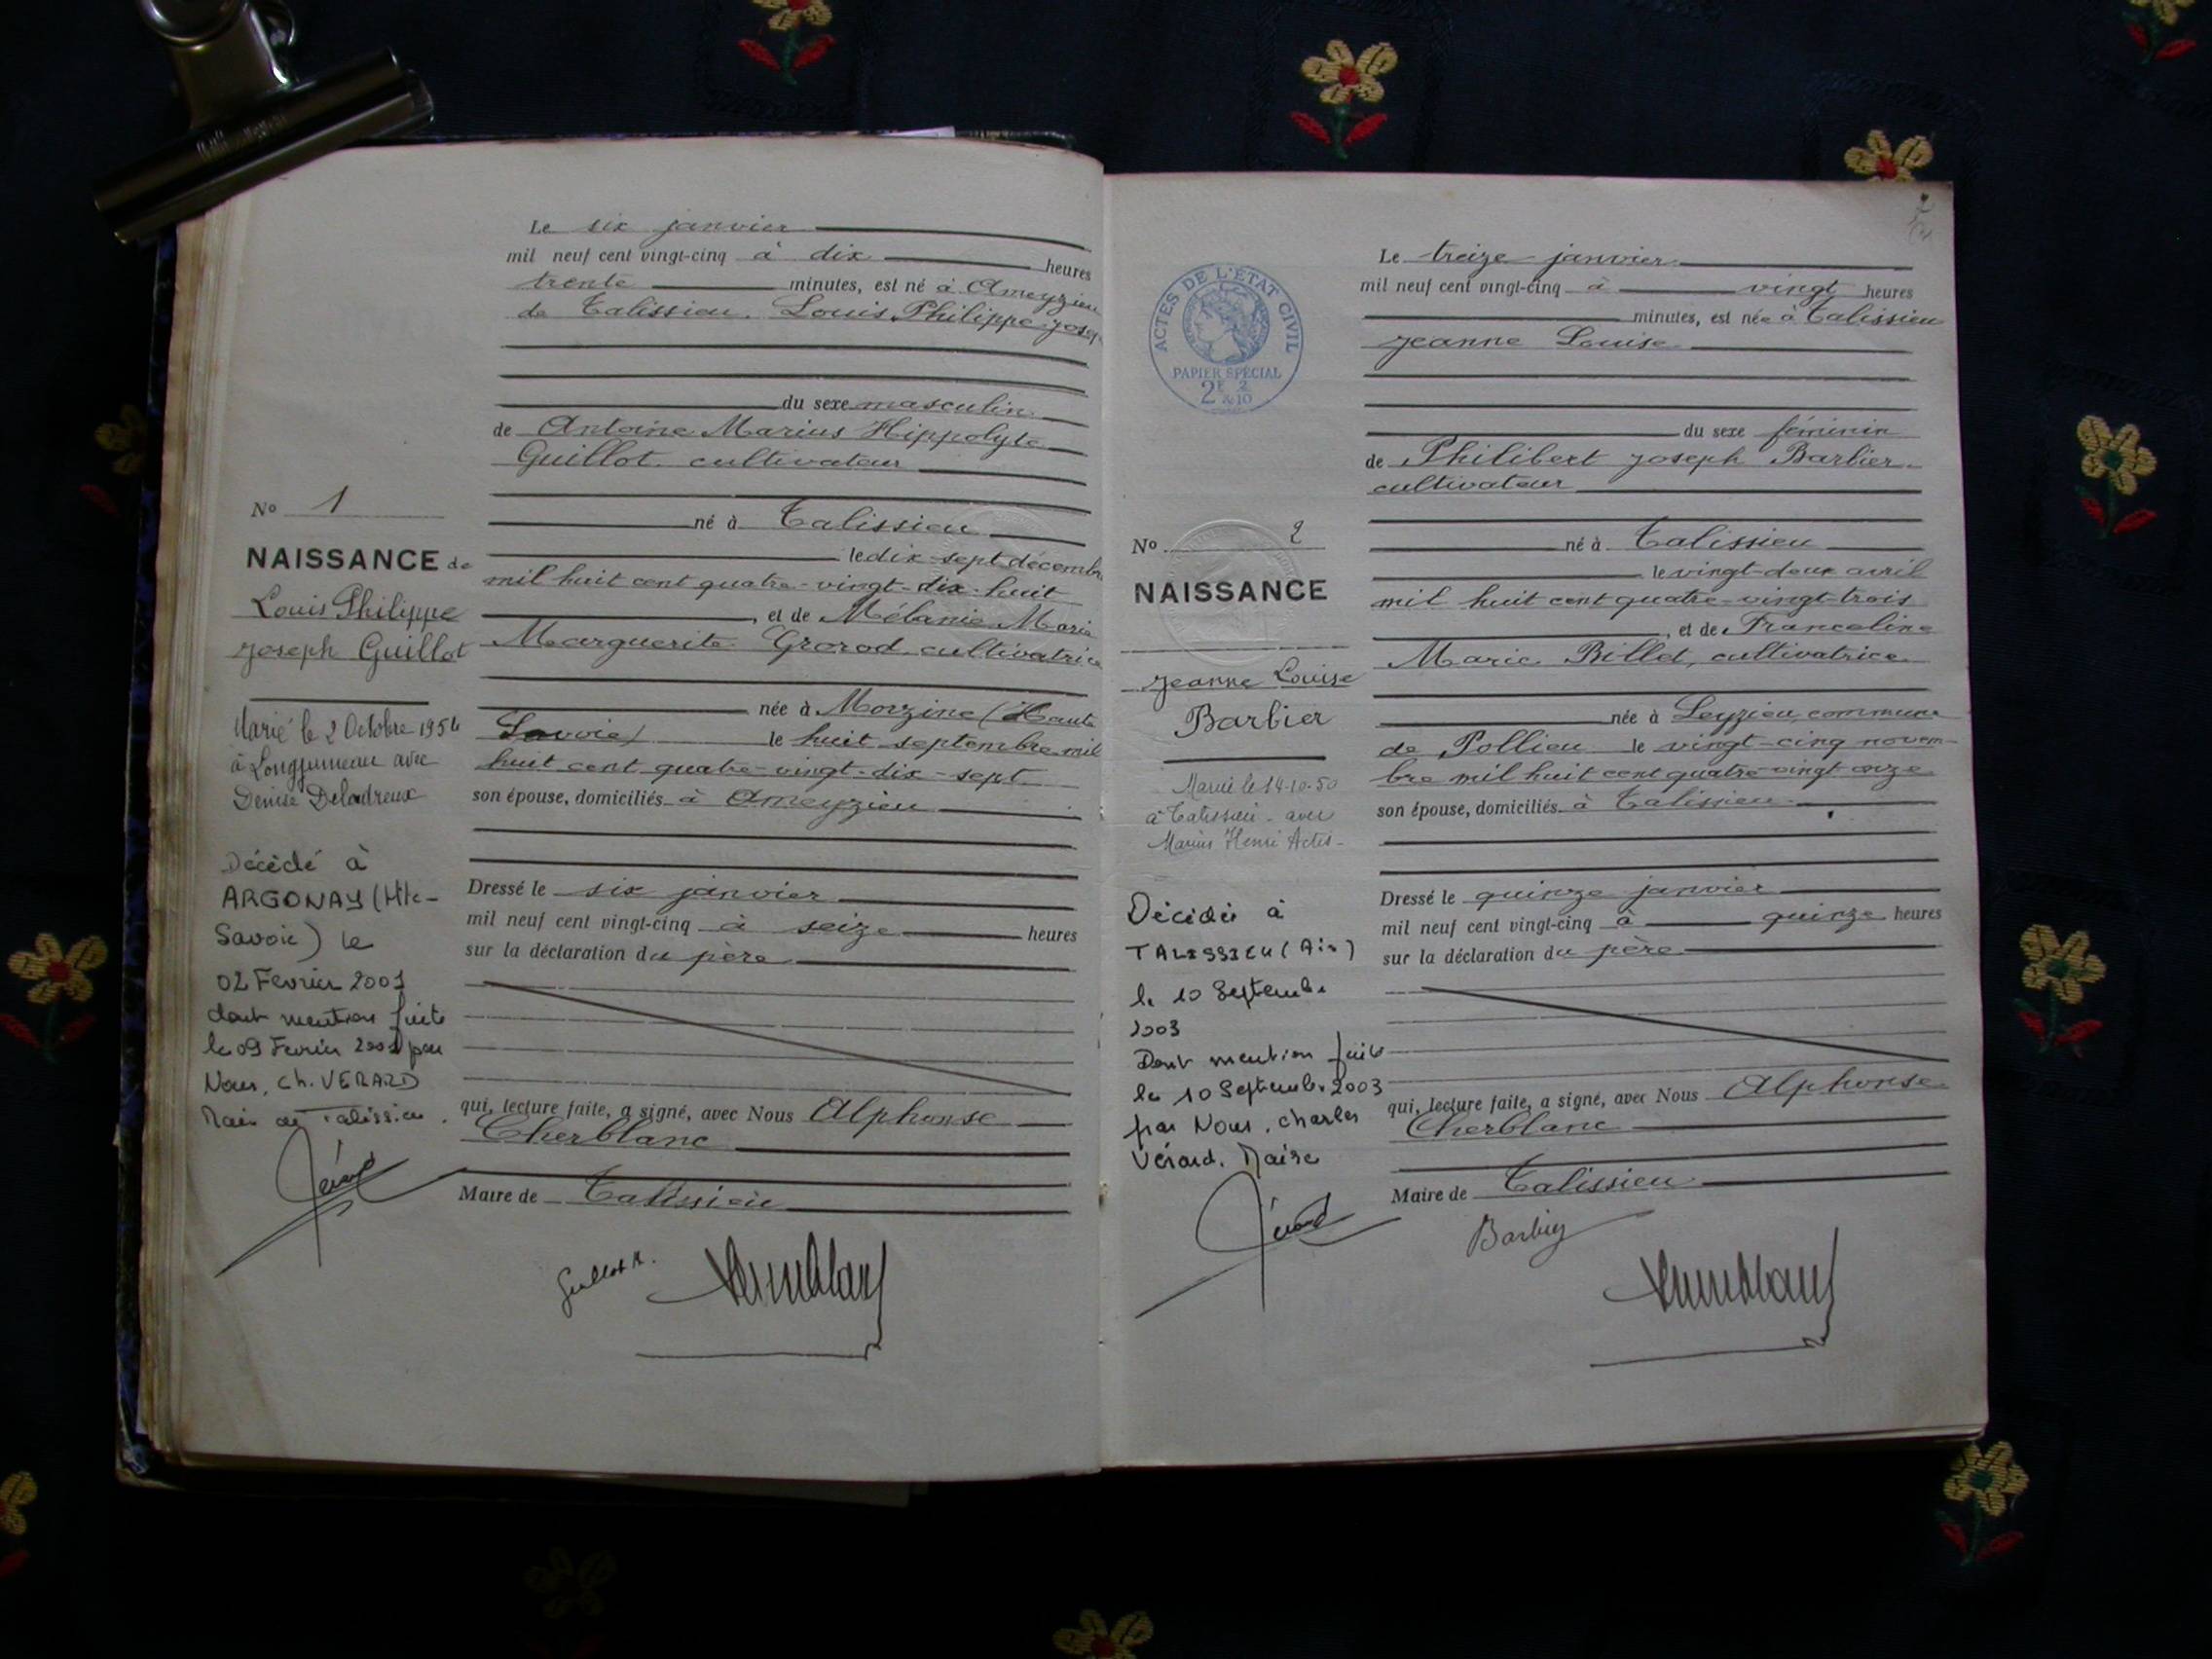 Le six janvier
mil neuf cent vingt-cinq à dix heures
trente minutes, est né à Ameyzieu
de Talissieu. Louis Philippe Josep
du sexe masculin
de Antoine Marius Hippolyte
Guillot cultivateur
né à Talissieu
le dix-sept décembre
mil huit cent quatre-vingt-dix-huit
, et de Mélanie Marie
Marguerite Grorod cultivatrice
née à Morzine (Haute
Savoie) le huit septembre mil
huit cent quatre-vingt-dix-sept
son épouse, domiciliés à Ameyzieu
Dressé le six janvier
mil neuf cent vingt-cinq à seize heures
sur la déclaration du père
qui, lecture faite, a signé, avec Nous Alphonse
Cherblanc
Maire de Talissieu
Guillot A.
No 1
NAISSANCE de
Louis Philippe
Joseph Guillot
Marié le 2 Octobre 1954
à Longjumeau avec
Denise Deladreux
Décédé à
ARGONAY (Hte-
Savoie) le
02 Fevrier 2001
dont mention faite
le 09 Fevrier 2001 par
Nous, Ch. VERARD
Maire de Talissieu.
ACTES DE L'ÉTAT CIVIL
PAPIER SPÉCIAL
2F 2/10
Le treize janvier
mil neuf cent vingt-cinq à vingt heures
minutes, est née à Talissieu
Jeanne Louise
du sexe féminin
de Philibert Joseph Barbier
cultivateur
né à Talissieu
le vingt-deux avril
mil huit cent quatre-vingt-trois
, et de Franceline
Marie Billet, cultivatrice
née à Leyzieu, commune
de Pollieu le vingt-cinq novem-
bre mil huit cent quatre-vingt-onze
son épouse, domiciliés à Talissieu
Dressé le quinze janvier
mil neuf cent vingt-cinq à quinze heures
sur la déclaration du père
qui, lecture faite, a signé, avec Nous Alphonse
Cherblanc
Maire de Talissieu
Barbier
No 2
NAISSANCE
Jeanne Louise
Barbier
Mariée le 14-10-50
à Talissieu - avec
Marius Henri Actis-
Décédée à
TALISSIEU (Ain)
le 10 Septembre
2003
Dont mention faite
le 10 Septembre 2003
par Nous, Charles
Vérard, Maire